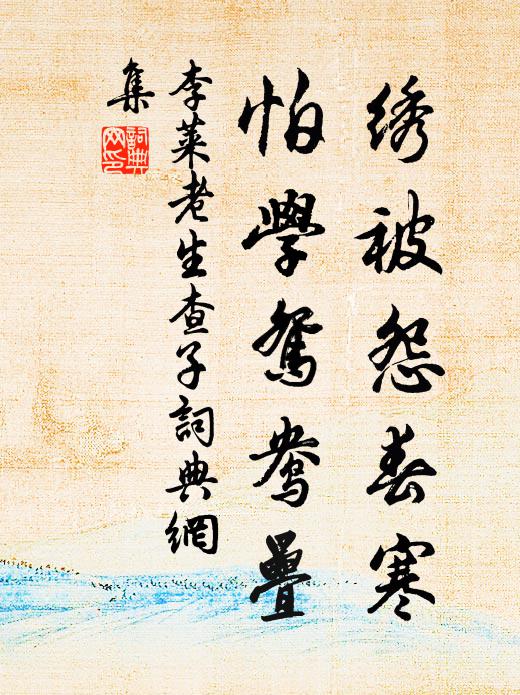 绣被怨春寒
怕學鴛鴦疊
李萊老生查子詞典網
集
詞典
网印